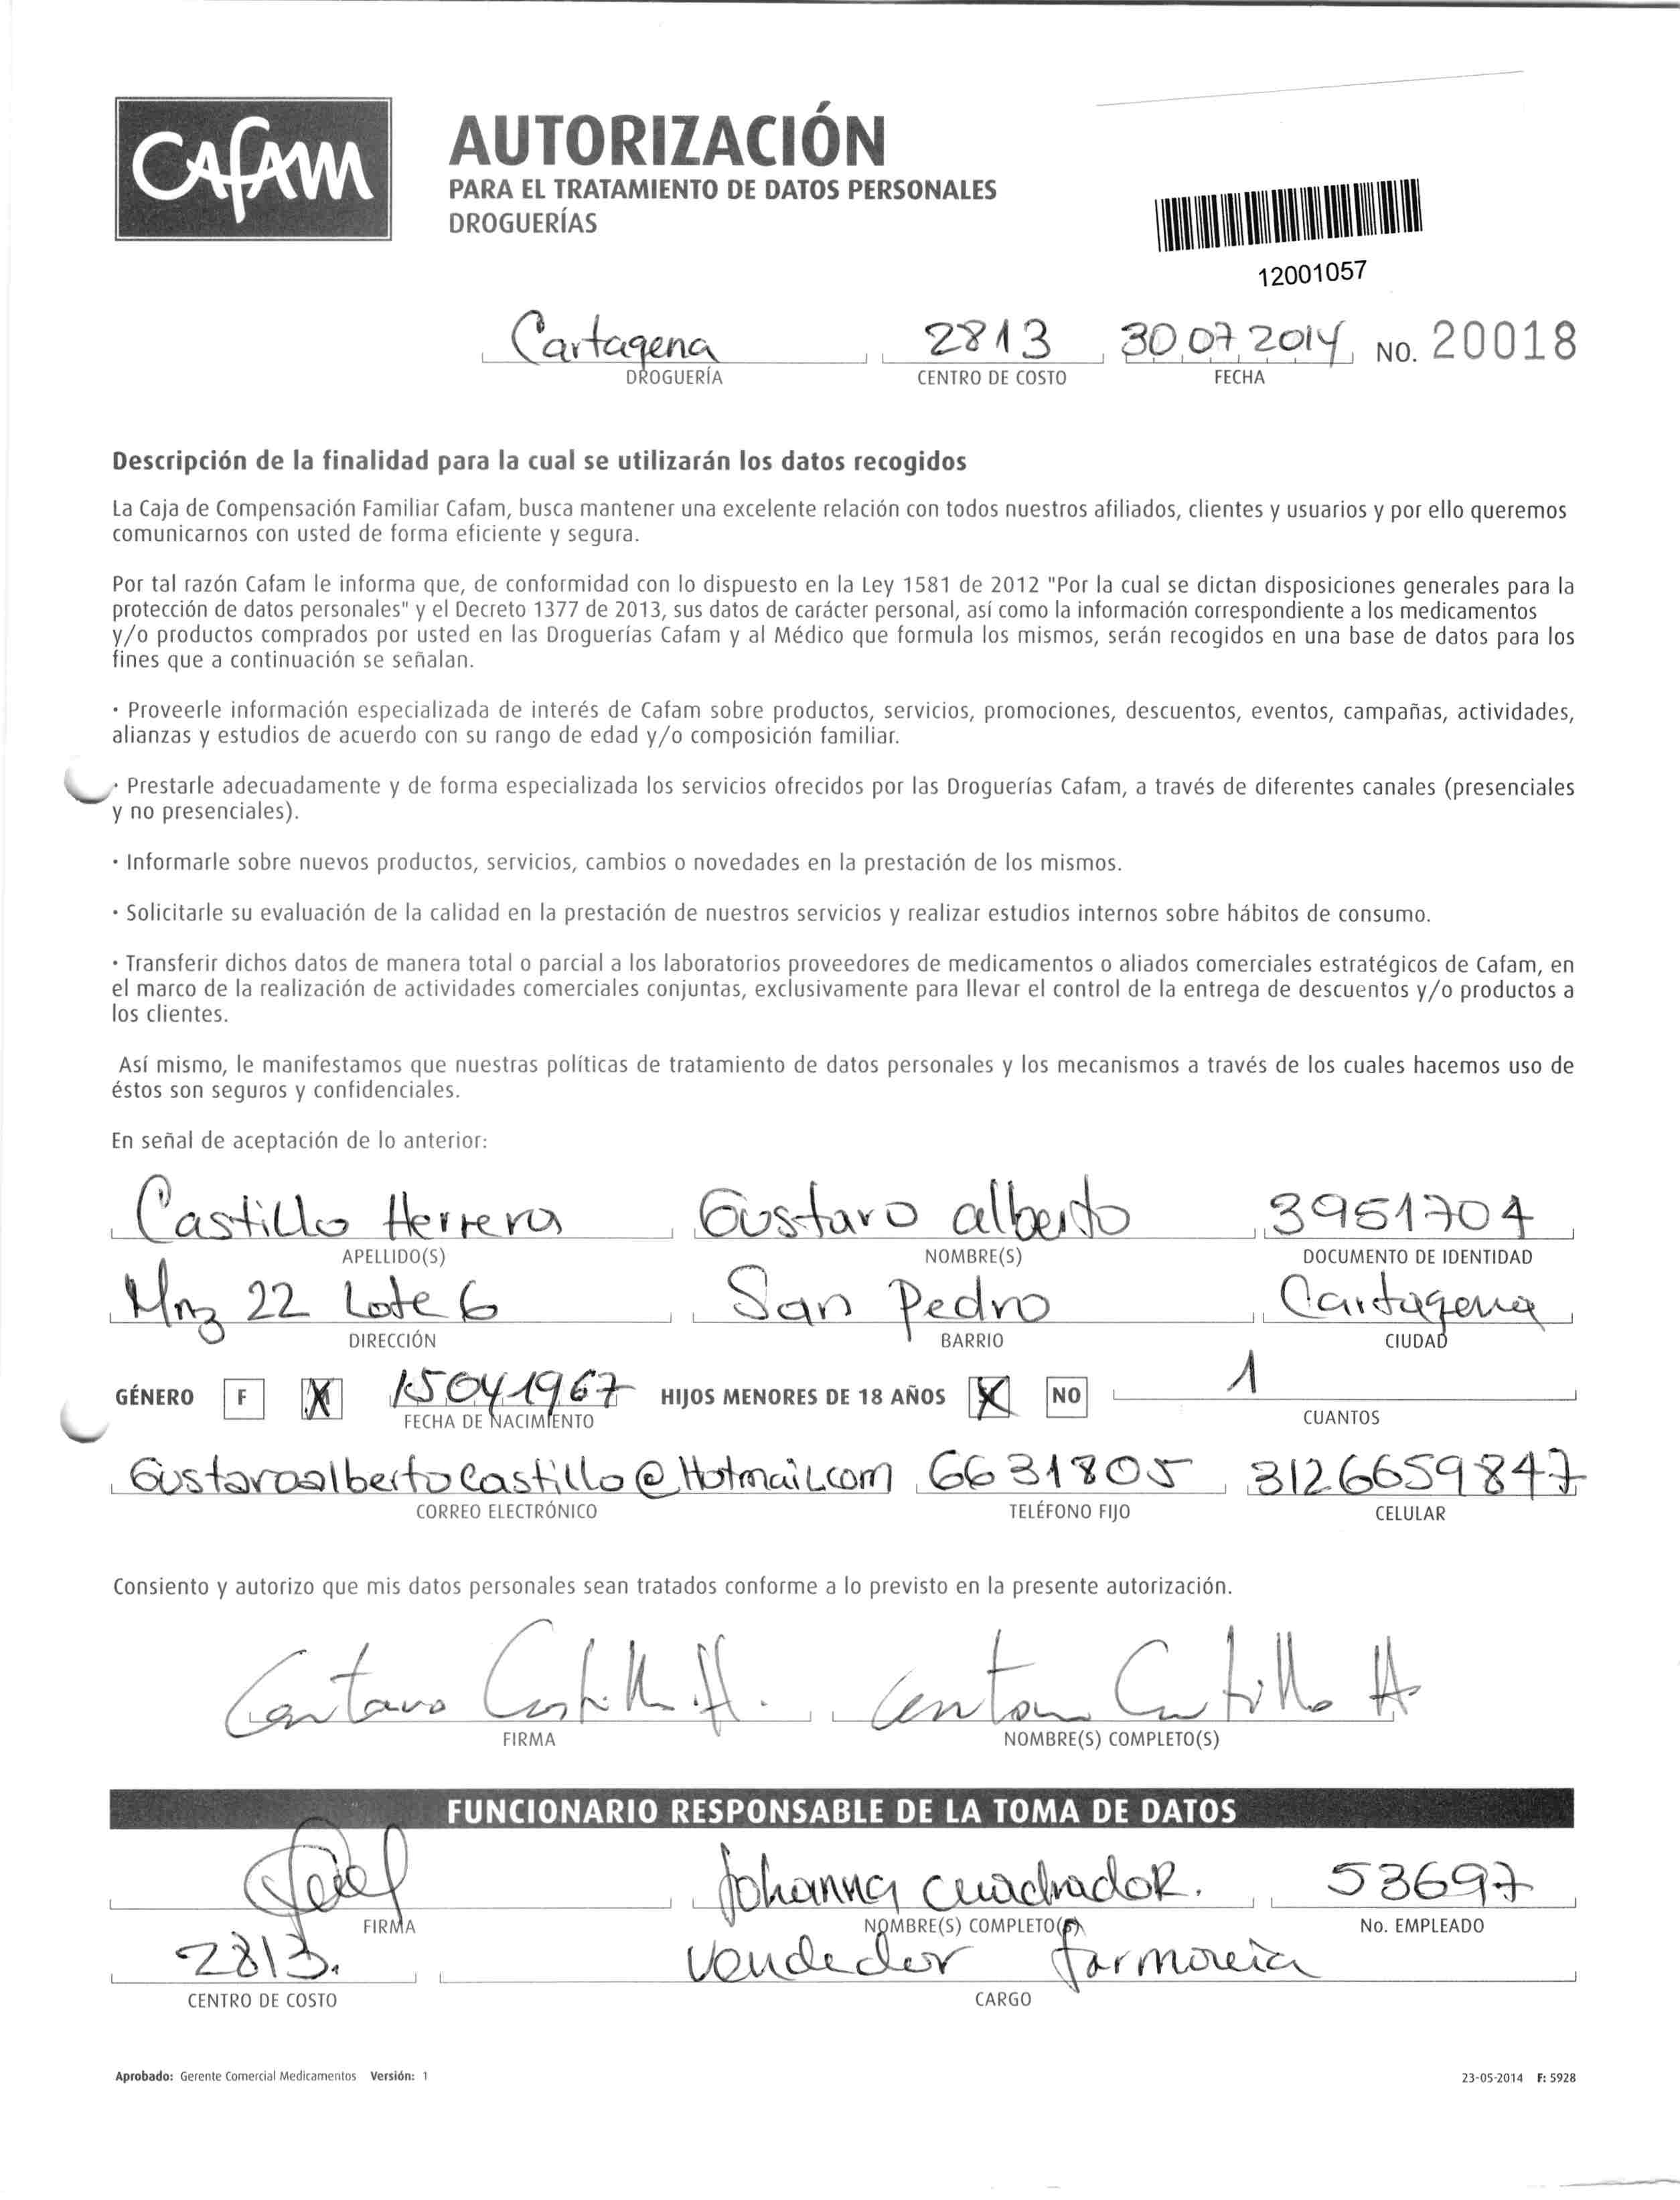 Cafam
AUTORIZACIÓN
PARA EL TRATAMIENTO DE DATOS PERSONALES
DROGUERÍAS
12001057
Cartagena 2813 30 07 2014 NO. 20018
DROGUERÍA CENTRO DE COSTO FECHA
Descripción de la finalidad para la cual se utilizarán los datos recogidos
La Caja de Compensación Familiar Cafam, busca mantener una excelente relación con todos nuestros afiliados, clientes y usuarios y por ello queremos
comunicarnos con usted de forma eficiente y segura.
Por tal razón Cafam le informa que, de conformidad con lo dispuesto en la Ley 1581 de 2012 "Por la cual se dictan disposiciones generales para la
protección de datos personales" y el Decreto 1377 de 2013, sus datos de carácter personal, así como la información correspondiente a los medicamentos
y/o productos comprados por usted en las Droguerías Cafam y al Médico que formula los mismos, serán recogidos en una base de datos para los
fines que a continuación se señalan.
· Proveerle información especializada de interés de Cafam sobre productos, servicios, promociones, descuentos, eventos, campañas, actividades,
alianzas y estudios de acuerdo con su rango de edad y/o composición familiar.
· Prestarle adecuadamente y de forma especializada los servicios ofrecidos por las Droguerías Cafam, a través de diferentes canales (presenciales
y no presenciales).
· Informarle sobre nuevos productos, servicios, cambios o novedades en la prestación de los mismos.
· Solicitarle su evaluación de la calidad en la prestación de nuestros servicios y realizar estudios internos sobre hábitos de consumo.
· Transferir dichos datos de manera total o parcial a los laboratorios proveedores de medicamentos o aliados comerciales estratégicos de Cafam, en
el marco de la realización de actividades comerciales conjuntas, exclusivamente para llevar el control de la entrega de descuentos y/o productos a
los clientes.
Así mismo, le manifestamos que nuestras políticas de tratamiento de datos personales y los mecanismos a través de los cuales hacemos uso de
éstos son seguros y confidenciales.
En señal de aceptación de lo anterior:
Castillo Herrera Gustavo alberto 3951704
APELLIDO(S) NOMBRE(S) DOCUMENTO DE IDENTIDAD
Mnz 22 Lote 6 San Pedro Cartagena
DIRECCIÓN BARRIO CIUDAD
GÉNERO F X 15041967 HIJOS MENORES DE 18 AÑOS X NO 1
FECHA DE NACIMIENTO CUANTOS
Gustavoalbertocastillo@Hotmail.com 6631805 3126659847
CORREO ELECTRÓNICO TELÉFONO FIJO CELULAR
Consiento y autorizo que mis datos personales sean tratados conforme a lo previsto en la presente autorización.
Castillo H. Castillo H
FIRMA NOMBRE(S) COMPLETO(S)
FUNCIONARIO RESPONSABLE DE LA TOMA DE DATOS
Johanna cuadrado R. 53697
FIRMA NOMBRE(S) COMPLETO(S) No. EMPLEADO
2813. Vendedor farmacia
CENTRO DE COSTO CARGO
Aprobado: Gerente Comercial Medicamentos Versión: 1 23-05-2014 F: 5928